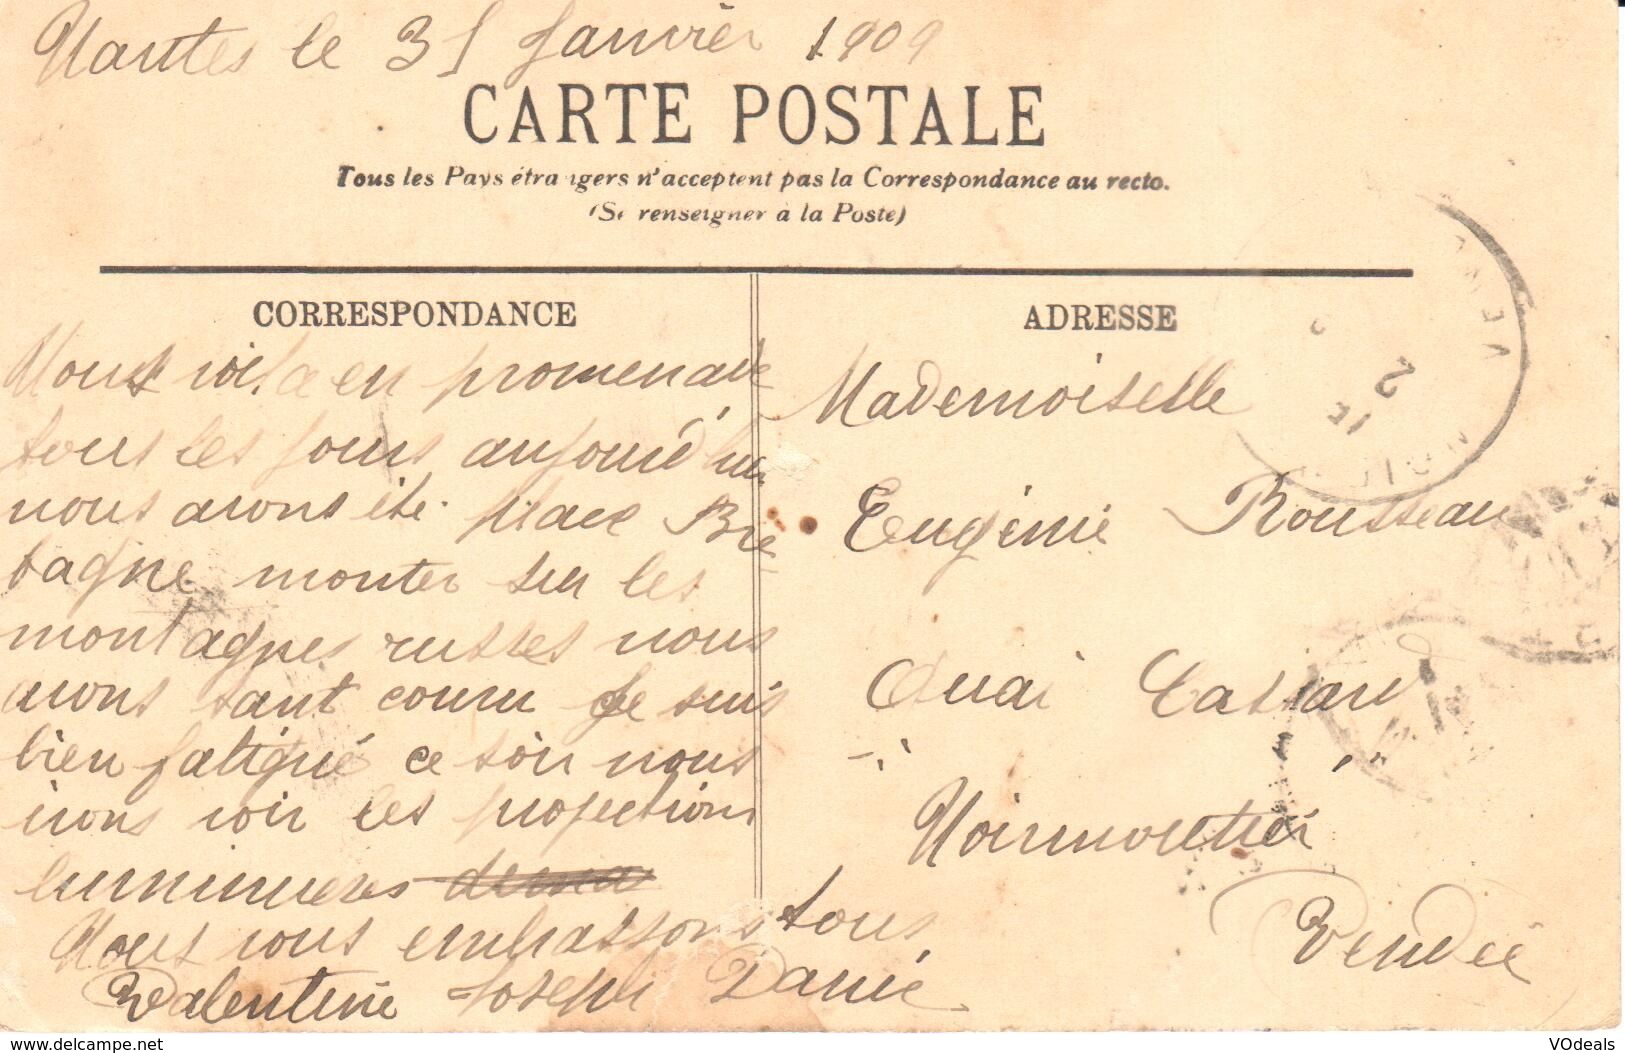 Nantes le 31 Janvier 1909
CARTE POSTALE
Tous les Pays étrangers n'acceptent pas la Correspondance au recto.
(Se renseigner à la Poste)
CORRESPONDANCE
Nous voila en promenade
tous les jours aujourd'hui
nous avons été place Bre
tagne monter sur les
montagnes russes nous
avons tant couru Je suis
bien fatigué ce soir nous
irons voir les projections
lumineuses
Nous vous embrassons tous
Valentine Joseph
ADRESSE
Mademoiselle
Eugénie Rousseau
Quai Cassard
Noirmoutier
Vendée
www.delcampe.net
VOdeals